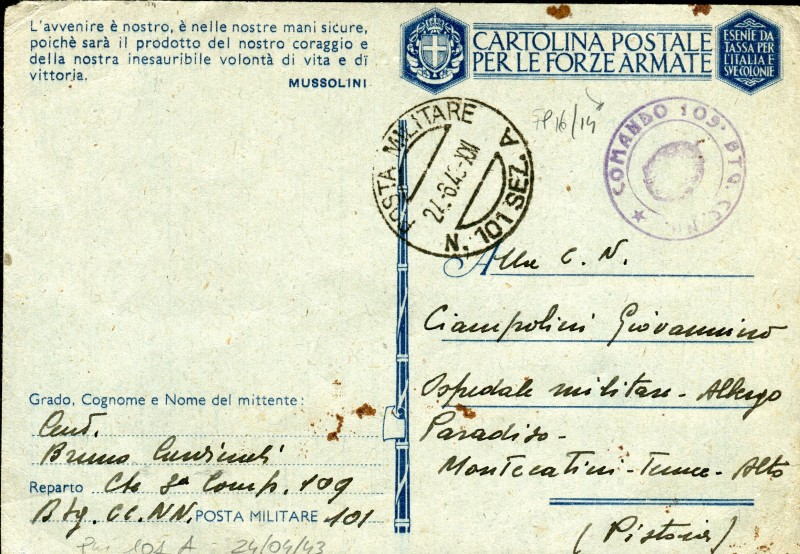 L'avvenire è nostro, è nelle nostre mani sicure,
poichè sarà il prodotto del nostro coraggio e
della nostra inesauribile volontà di vita e di
vittoria.
MUSSOLINI
CARTOLINA POSTALE
PER LE FORZE ARMATE
ESENTE DA
TASSA PER
L'ITALIA E
SVE COLONIE
FP16/14
POSTA MILITARE
N. 101 SEZ. A
COMANDO 109° BTG. CC.NN.
Alla C. N.
Ciampolini Giovannino
Ospedale militare - Albergo
Paradiso -
Montecatini - Terme - Alto
(Pistoia)
Grado, Cognome e Nome del mittente:
Bruno
Reparto Cte 3a Comp. 109
Btg. CC. NN. POSTA MILITARE 101
101 A - 24/04/43